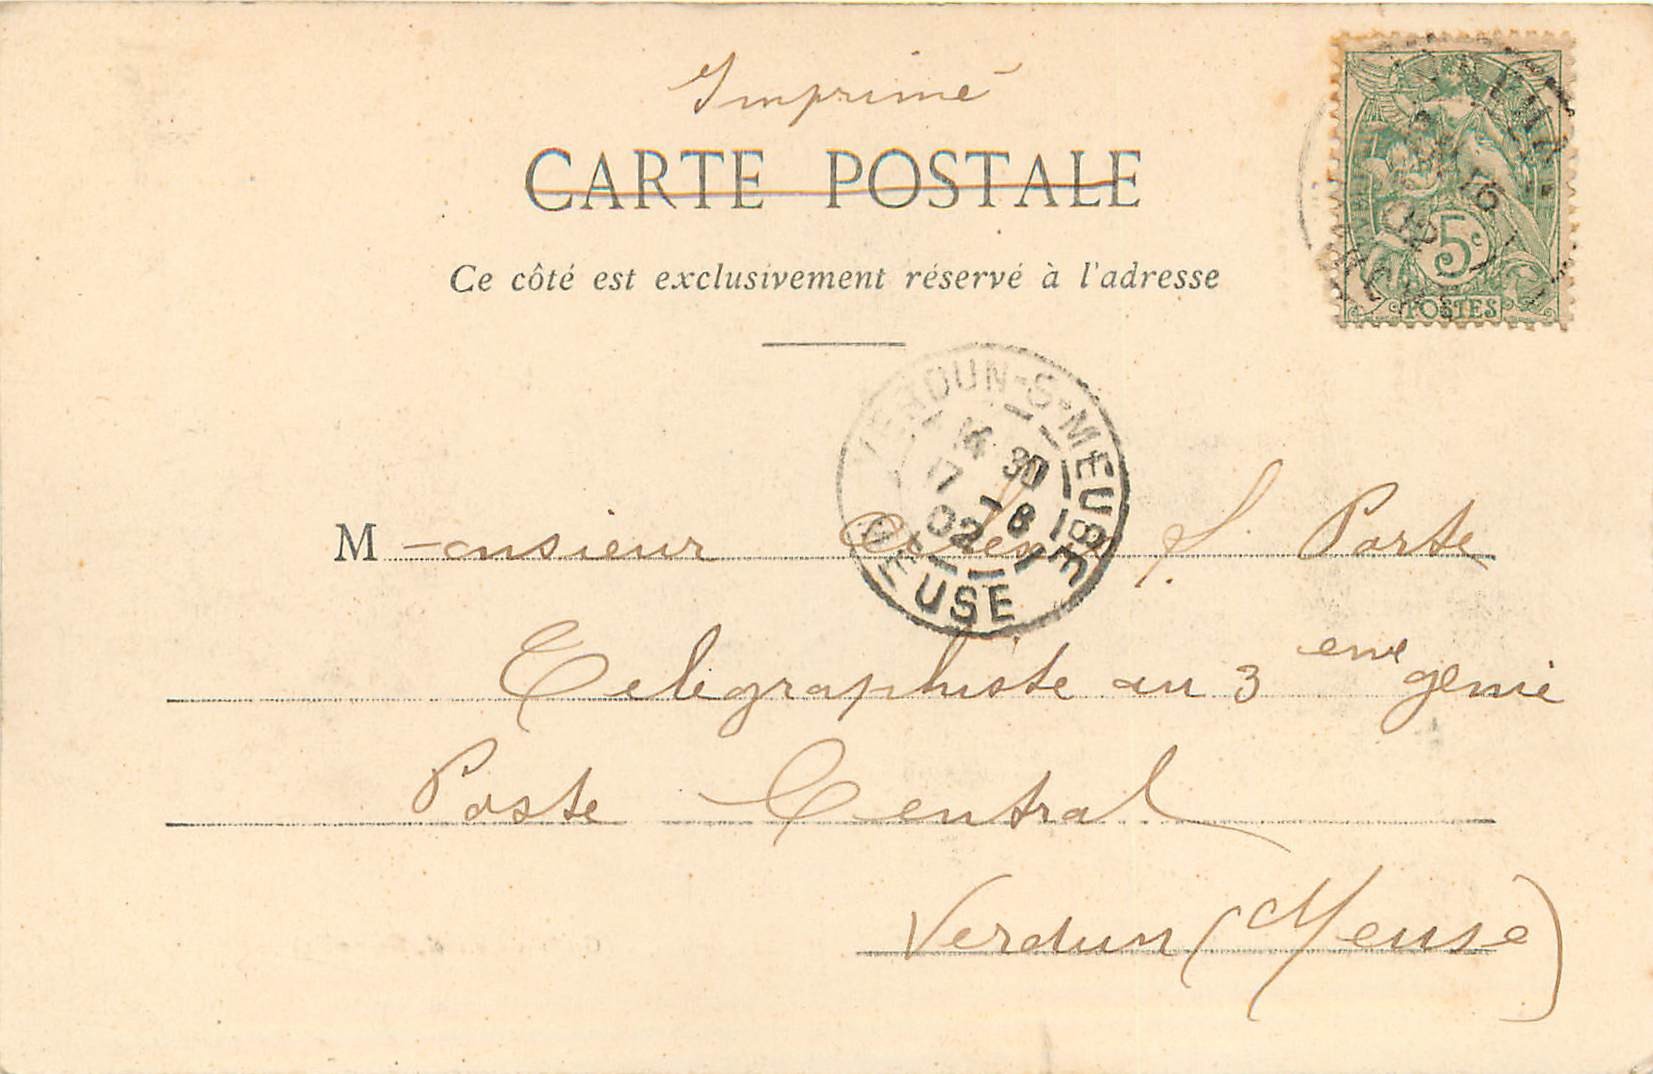 Imprimé
CARTE POSTALE
Ce côté est exclusivement réservé à l'adresse
5c
POSTES
VERDUN-S-MEUSE
16 30
17 -8
02
MEUSE
Monsieur S. Porte
Telegraphiste au 3eme genie
Poste Central
Verdun (Meuse)